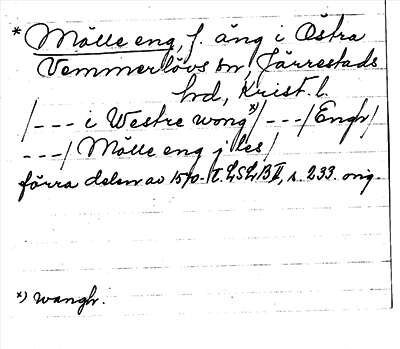 * Mölle eng, f. äng i Östra
Vemmerlövs sn, Järrestads
hd, Krist. l.
/--- i Westre wong *)/---/Engh/
---/ Mölle eng j les/
förra delen av 1570-t. LSLB II, s. 233. orig.
*) wangh.